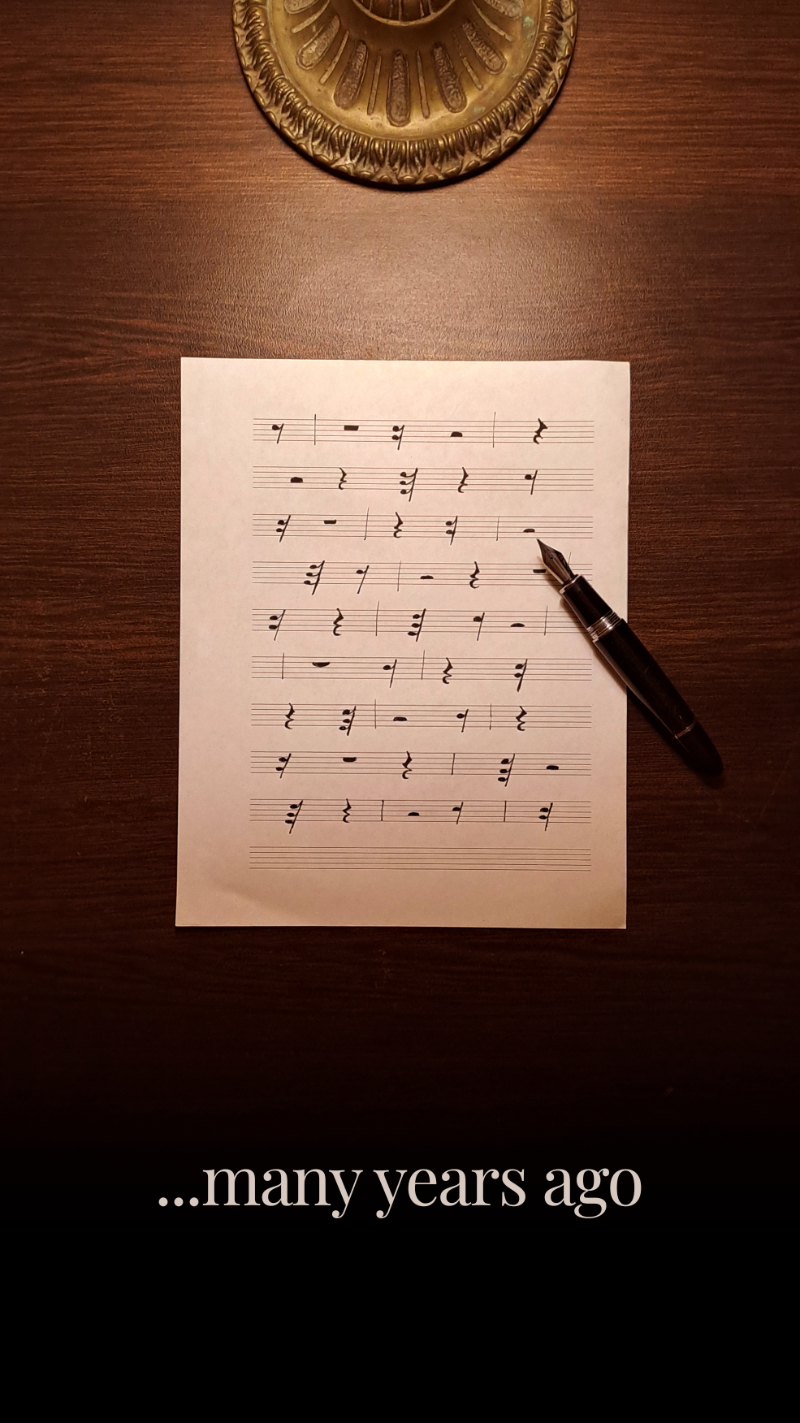 ...many years ago